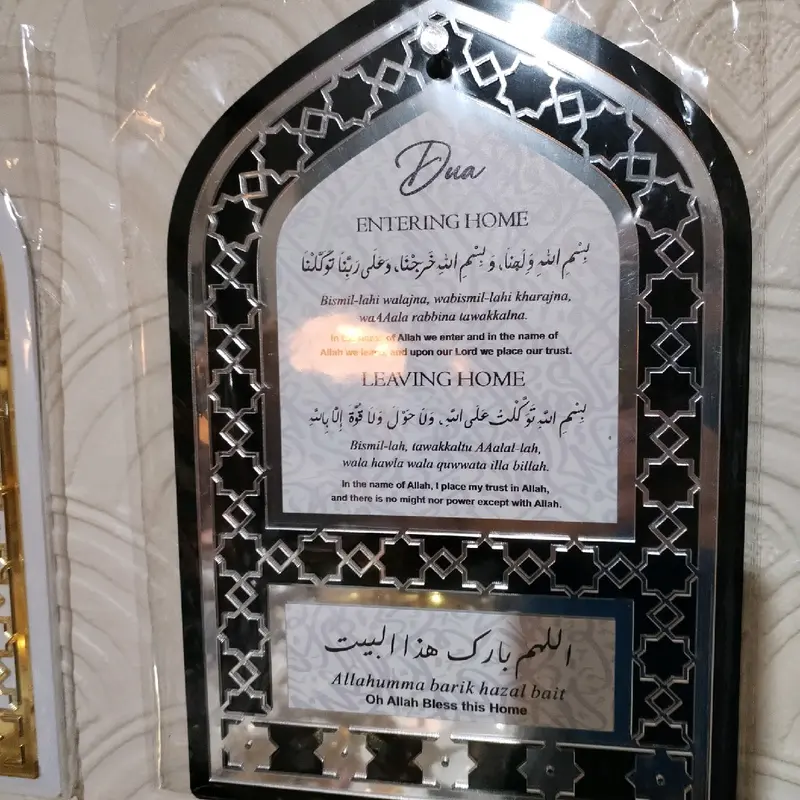 Dua
ENTERING HOME
بِسْمِ اللهِ وَلَجْنَا، وَ بِسْمِ اللهِ خَرَجْنَا، وَعَلَى رَبِّنَا تَوَكَّلْنَا
Bismil-lahi walajna, wabismil-lahi kharajna,
waAAala rabbina tawakkalna.
In the name of Allah we enter and in the name of
Allah we leave and upon our Lord we place our trust.
LEAVING HOME
بِسْمِ اللهِ تَوَكَّلْتُ عَلَى اللهِ، وَلَا حَوْلَ وَلَا قُوَّةَ إِلَّا بِاللهِ
Bismil-lah, tawakkaltu AAalal-lah,
wala hawla wala quwwata illa billah.
In the name of Allah, I place my trust in Allah,
and there is no might nor power except with Allah.
اللهم بارك هذا البيت
Allahumma barik hazal bait
Oh Allah Bless this Home